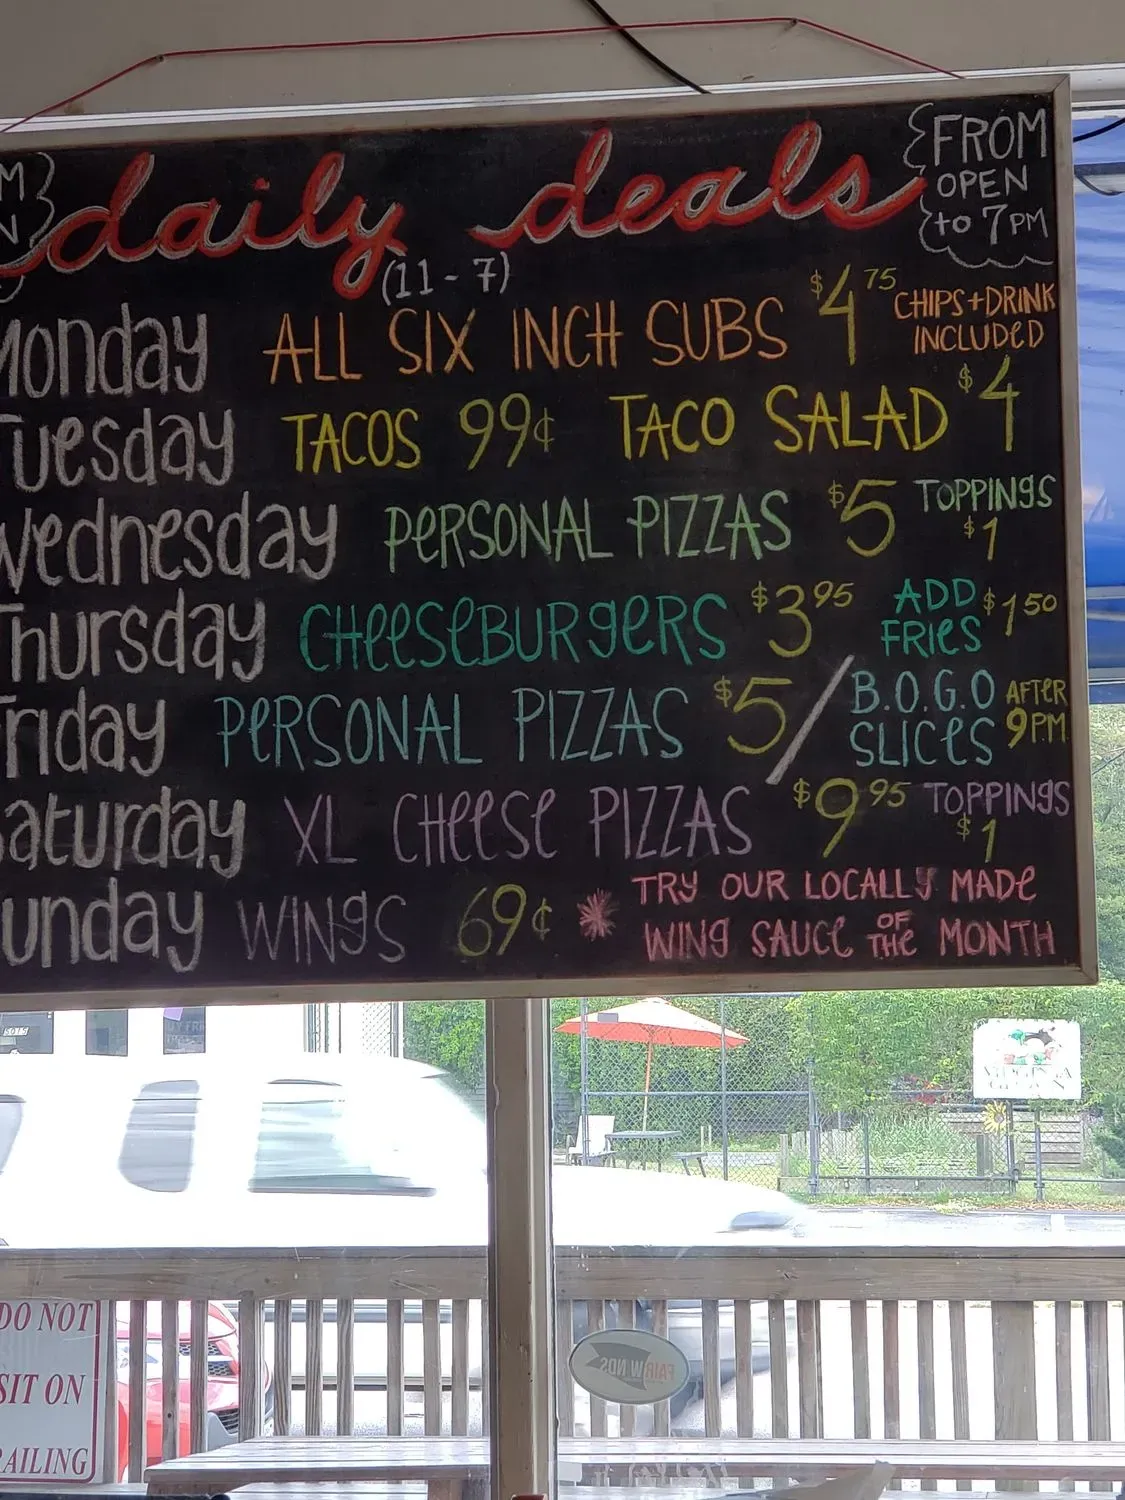 daily deals
FROM
OPEN
to 7PM
(11-7)
Monday ALL SIX INCH SUBS $4.75 CHIPS+DRINK INCLUDED
Tuesday TACOS 99¢ TACO SALAD $4
Wednesday PERSONAL PIZZAS $5 TOPPINGS $1
Thursday CHEESEBURGERS $3.95 ADD FRIES $1.50
Friday PERSONAL PIZZAS $5/ B.O.G.O SLICES AFTER 9PM
Saturday XL CHEESE PIZZAS $9.95 TOPPINGS $1
Sunday WINGS 69¢ * TRY OUR LOCALLY MADE
WING SAUCE OF THE MONTH
DO NOT
SIT ON
RAILING
FAIRWINDS